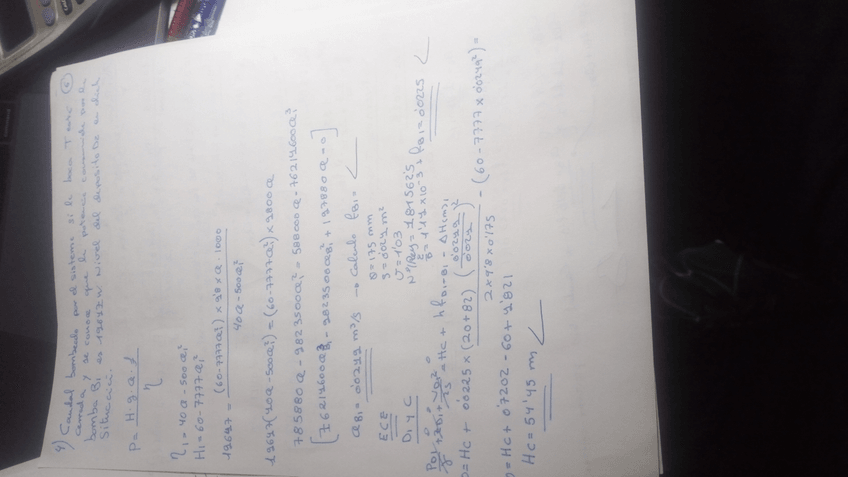 4) Caudal bombeado por el sistema si la boca T está
cerrada y se conoce que la potencia por la
bomba B₁ es 19647 w Nivel del deposito De en dicha
Situación.
P = H·g·Q / η
η₁ = 40Q - 500Q₁²
H₁ = 60 - 7777Q₁²
19647 = (60-7777Q₁²) × 9'8 × Q · 1000 / 40Q - 500Q₁²
19647(40Q-500Q₁²) = (60-7777Q₁²) × 9800Q
785880Q - 9823500Q₁² = 588000Q - 76214600Q₁³
[76214600Q³B₁ - 9823500Q²B₁ + 197880Q = 0]
QB₁ = 0'0249 m³/s → Calculo fB₁ =
Ø = 175 mm
S = 0'024 m²
V = 1'03
NºRey = 181562'5
= 1'14×10⁻³ } fB₁ = 0'0225
ECB
D₁ y C
= Hc + hfD₁-B₁ - ΔH(m)₁
0 = Hc + 0'0225 × (20+82) (0'0249/0'024)² / 2×9'8×0'175 - (60-7777×0'0249²) =
0 = Hc + 0'7202 - 60 + 4'821
Hc = 54'45 m